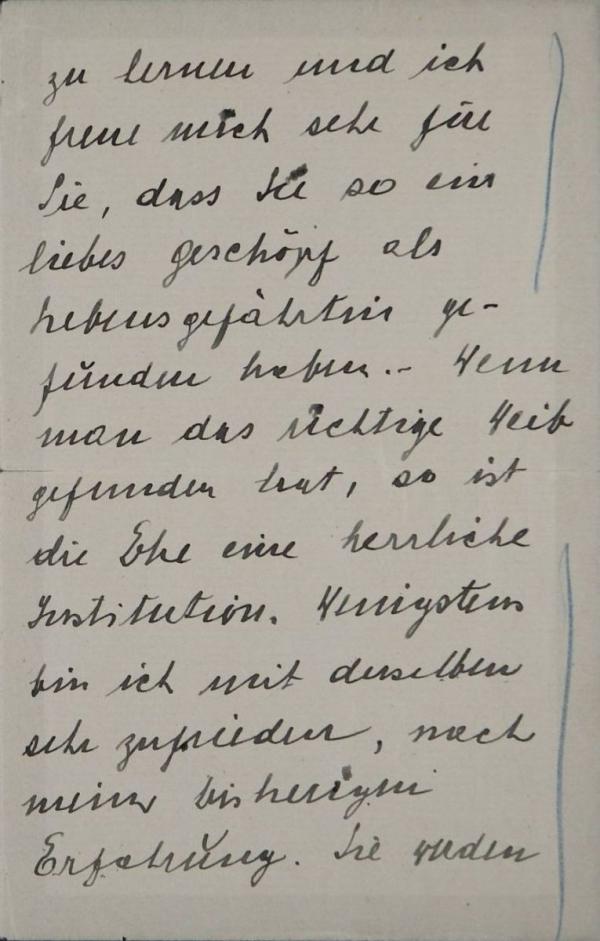 zu lernen und ich
freue mich sehr für
Sie, dass Sie so ein
liebes Geschöpf als
Lebensgefährtin ge-
funden haben.- Wenn
man das richtige Weib
gefunden hat, so ist
die Ehe eine herrliche
Institution. Wenigstens
bin ich mit derselben
sehr zufrieden, nach
meiner bisherigen
Erfahrung. Sie werden